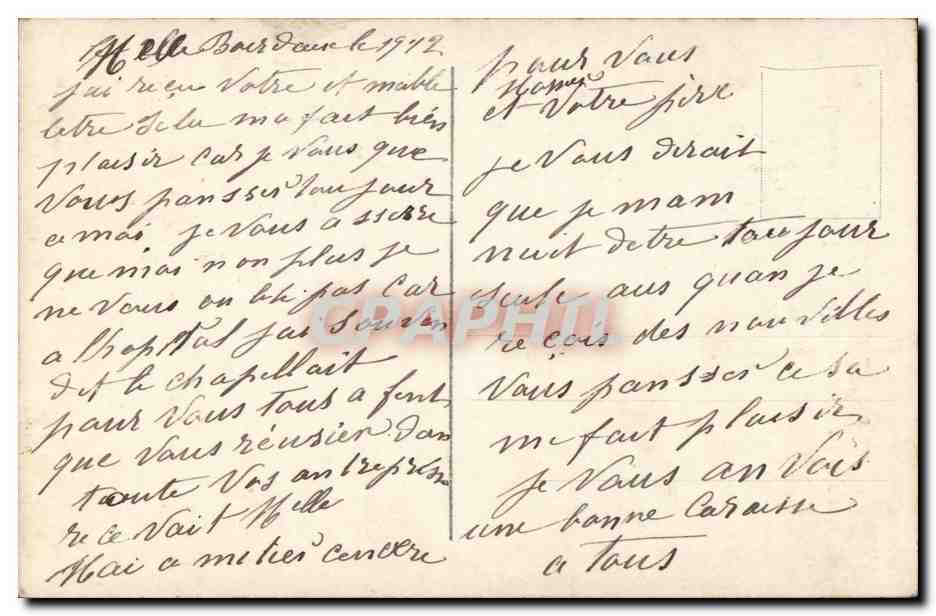 Melle Bourdeau le 1912
jai reçu votre et mable
letre Sela ma fait bien
plaisir car je vous que
vous pansser toujour
a moi je vous assure
que moi non plus je
ne vous oublie pas car
a lhopital jai souven
dit le chapellait
pour vous tous a fent
que vous réusier dan
toute vos antrepris
re ce vait Melle
Mai a mitier cencere
pour vous
et votre père
je vous dirait
que je mam
nuit detre toujour
seule aus quan je
reçois des nouvilles
vous pansser ce sa
me fait plaisir
je vous anvois
une bonne caraisse
a tous
CPAPHIL